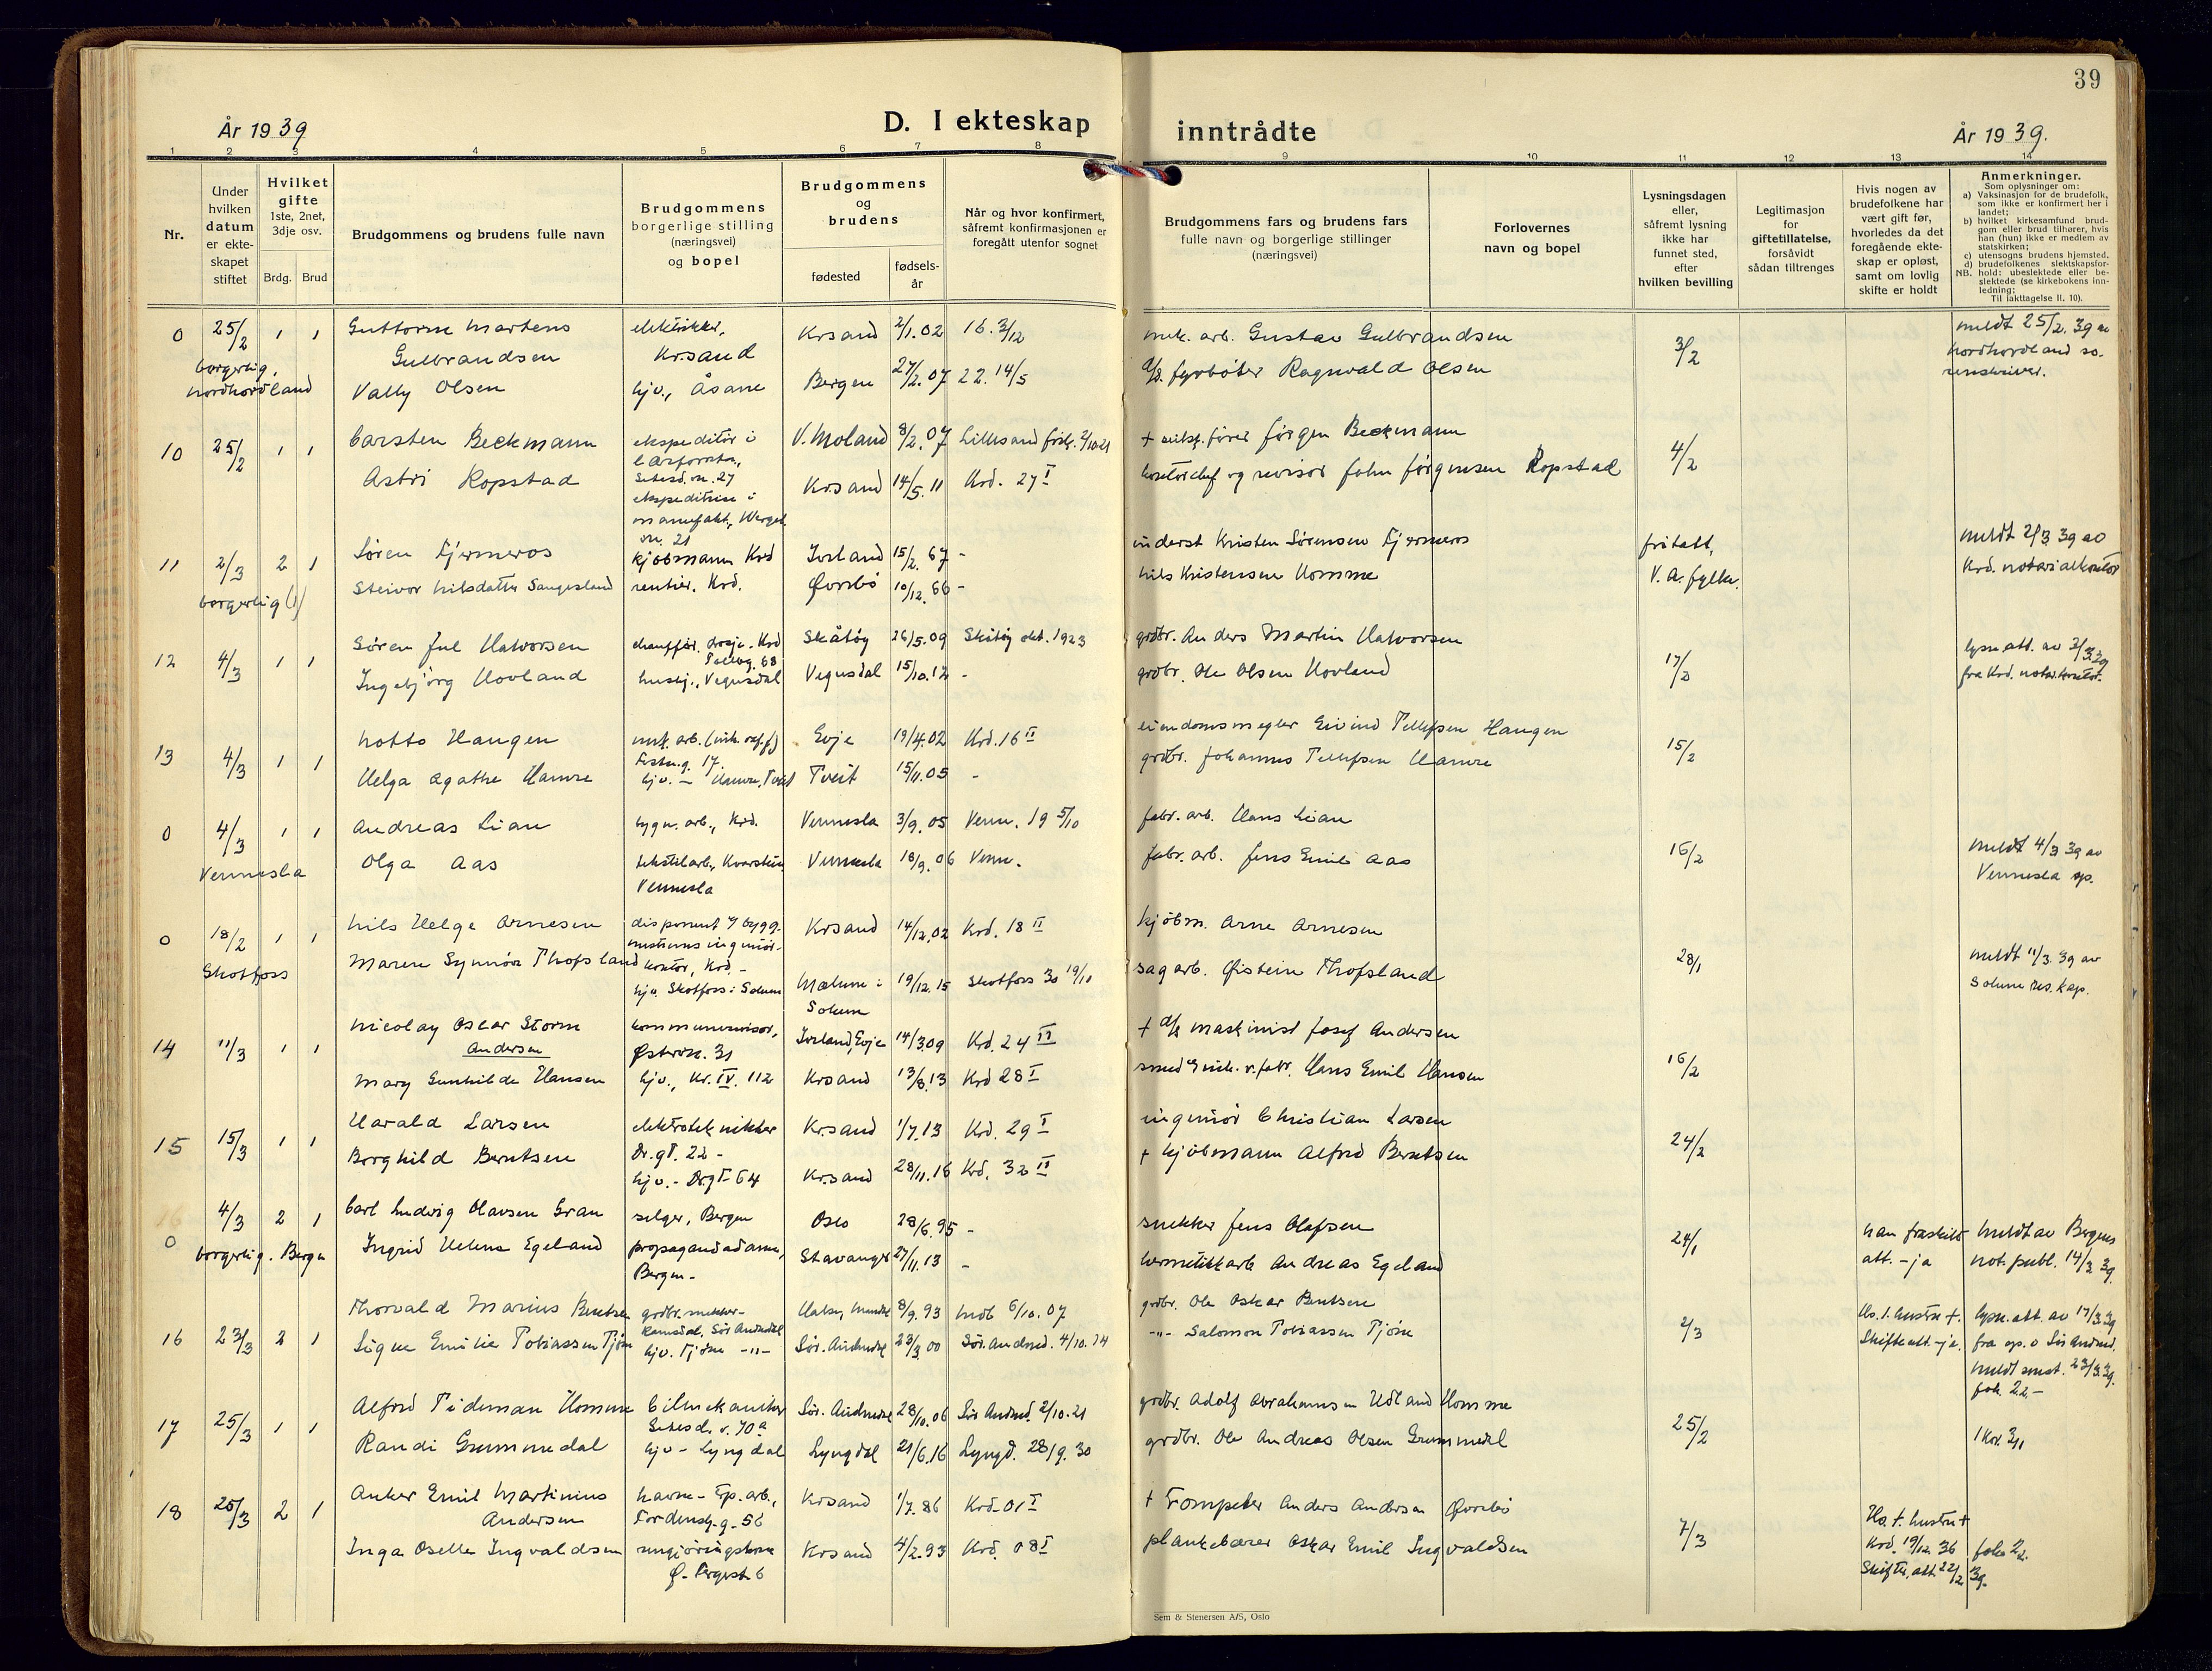 39
År 1939
D. I ekteskap inntrådte
År 1939.
1 2 3 4 5 6 7 8 9 10 11 12 13 14
Nr.
Under hvilken datum er ekte-skapet stiftet
Hvilket gifte 1ste, 2net, 3dje osv.
Brdg. Brud
Brudgommens og brudens fulle navn
Brudgommens borgerlige stilling (næringsvei) og bopel
Brudgommens og brudens
fødested
fødsels-år
Når og hvor konfirmert, såfremt konfirmasjonen er foregått utenfor sognet
Brudgommens fars og brudens fars fulle navn og borgerlige stillinger (næringsvei)
Forlovernes navn og bopel
Lysningsdagen eller, såfremt lysning ikke har funnet sted, efter hvilken bevilling
Legitimasjon for giftetillatelse, forsåvidt sådan tiltrenges
Hvis nogen av brudefolkene har vært gift før, hvorledes da det foregående ekte-skap er opløst, samt om lovlig skifte er holdt
Anmerkninger.
Som oplysninger om:
a) Vaksinasjon for de brudefolk, som ikke er konfirmert her i landet;
b) hvilket kirkesamfund brud-gom eller brud tilhører, hvis han (hun) ikke er medlem av statskirken;
c) utensogns brudens hjemsted.
d) brudefolkenes slektskapsfor-hold: ubeslektede eller be-slektede (se kirkebokens inn-ledning;
NB.
Til iakttagelse II. 10).
0 25/2 1 1 Guttorm Martens elektriker, Krsand 2/1.02 16. 3/12 mek. arb. Gustav Gulbrandsen 3/2 meldt 25/2. 39 av
Gulbrandsen Krsand nordhordland so-
borgerlig, nordhordland Vally Olsen hjv., Åsane Bergen 27/2.07 22. 14/5 fyrbøter Ragnvald Olsen renskriver.
10 25/2 1 1 Carsten Beckmann ekspeditør i V. Moland 8/2.07 Lillesand + Jørgen Beckmann 4/2
Astri Ropstad Setesd.v. 27 ekspeditrise i Krsand 14/5.11 Krd. 27 I kontorchef og revisor John Jørgensen Ropstad
11 2/3 2 1 Søren Fjermeros kjøbmann Krd Iveland 15/2.67 - inderst Kristen Sørensen Fjermeros fritatt, meldt 2/3 39 av
borgerlig Steinor Nilsdatter Sangesland rentier. Krd. Øvrebø 10/12.66 - Nils Kristensen Homme V. A. fylke. Krd. notarialkontor
12 4/3 1 1 Søren Jul Halvorsen chauffør. Krd Skåtøy 26/5.09 Skåtøy okt. 1923 grdbr. Anders Martin Halvorsen 17/2 lysn.att. av 3/3 39
Ingebjørg Hovland husj., Vegusdal Vegusdal 15/10.12 - grdbr. Ole Olsen Hovland fra Krd. notar.kontor.
13 4/3 1 1 Notto Haugen mek. arb. Evje 19/4.02 Krd. 16 II eiendomsmegler Eivind Tellefsen Haugen 15/2
Helga Agathe Hamre hjv. - Hamre, Tveit Tveit 15/11.05 - grdbr. Johannes Tellefsen Hamre
0 4/3 1 1 Andreas Lian bygn. arb., Krd. Vennesla 3/9.05 Venn. 19 5/10 fabr. arb. Hans Lian 16/2 meldt 4/3 39 av
Vennesla Olga Aas tekstilarb., Kvarstein, Vennesla Vennesla 18/9.06 Venn. fabr. arb. Jens Emil Aas Vennesla sp.
0 18/2 1 1 Nils Helge Arnesen disponent Krsand 14/12.02 Krd. 18 II kjøbm. Arne Arnesen 28/1 meldt 11/3 39 av
Skotfoss Maren Synnöve Thofsland kontor, Krd. - hjv. Skotfoss i Solum Mælum i Solum 19/12.15 Skotfoss 30 19/10 sagarb. Øistein Thofsland Solum res. kap.
14 11/3 1 1 Nicolay Oscar Storm Andersen kommunerevisor, Østerv. 31 Iveland, Evje 14/3.09 Krd. 24 II + maskinist Josef Andersen 16/2
Mary Gunhilde Hansen hjv., Kr. IV. 112 Krsand 13/8.13 Krd 28 I smed Hans Emil Hansen
15 15/3 1 1 Harald Larsen elektrotekniker Dr.gt. 22 - Krsand 1/7.13 Krd. 29 I ingeniør Christian Larsen 24/2
Borghild Berntsen hjv. - Dr.gt- 64 Krsand 28/11.16 Krd. 32 II + kjøbmann Alfred Berntsen
0 4/3 2 1 Carl Ludvig Olavsen Gran selger, Bergen Oslo 28/6.95 - snekker Jens Olafsen 24/1 han fraskilt meldt av Bergens
borgerlig. Bergen Ingrid Helene Egeland propagandadame, Bergen - Stavanger 27/11.13 - hermetikkarb Andreas Egeland att. - ja not. publ. 14/3 39.
16 23/3 2 1 Thorvald Marius Berntsen grdbr. snekker - Halse, Mandal 8/9.93 6/10.07 grdbr. Ole Oskar Berntsen 2/3 Hs. 1. hustru +. lysn. att. av 17/3 39
Signe Emilie Tobiassen Tjöm hjv. Tjöm -"- Sör. Audnedal 23/3.00 Sör. Audned. 4/10.14 -"- Salomon Tobiassen Tjöm Skifteatt. - ja. fra sp. i Sör Audned.
meldt smst. 23/3 39.
fol. 22 -
17 25/3 1 1 Alfred Tideman Homme bilmekaniker Setesd. v. 70a Sör. Audnedal 28/10.06 Sör Audned. 2/10.21 grdbr. Adolf Abrahamsen Udland Homme 25/2
Randi Grummedal hjv - Lyngdal Lyngdal 21/6.16 Lyngd. 28/9. 30 grdbr. Ole Andreas Olsen Grummedal
18 25/3 2 1 Anker Emil Martinius Andersen havne - Tordenskj.g. 56 Krsand 1/7.86 Krd. 01 I + Trompeter Anders Andersen Øvrebø 7/3 Hs. f. hustru +
Inga Oselle Ingvaldsen rengjøringskone Krsand 4/2.93 Krd. 08 I plankebærer Oskar Emil Ingvaldsen Krd. 19/12 36 fol. 22.
Skifter. att 22/2 39.
Sem & Stenersen A/S, Oslo